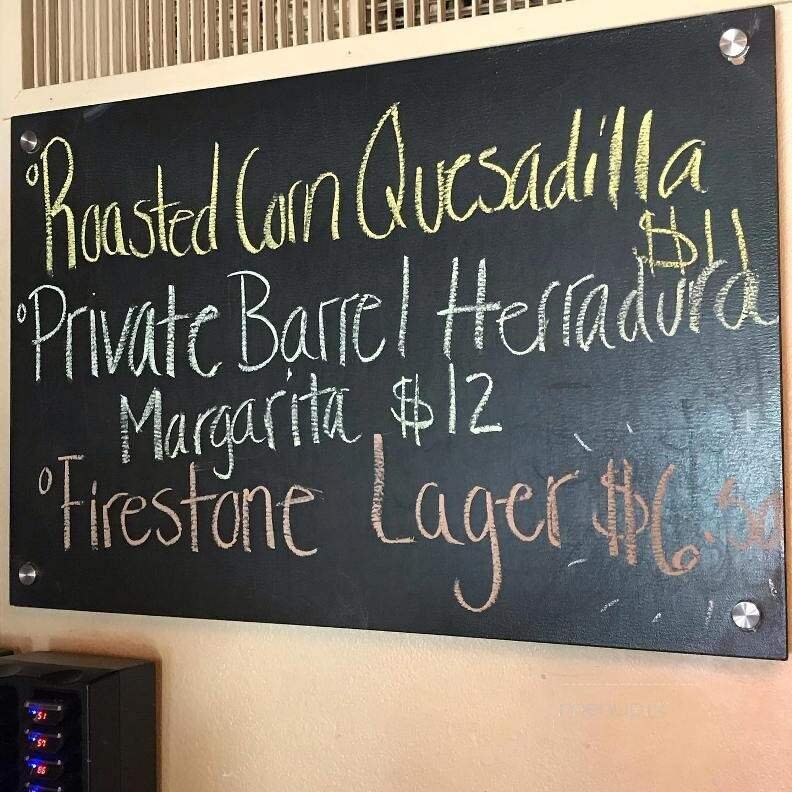 °Roasted Corn Quesadilla
$11
°Private Barrel Herradura
Margarita $12
°Firestone Lager $6.50
menupix
51
57
86